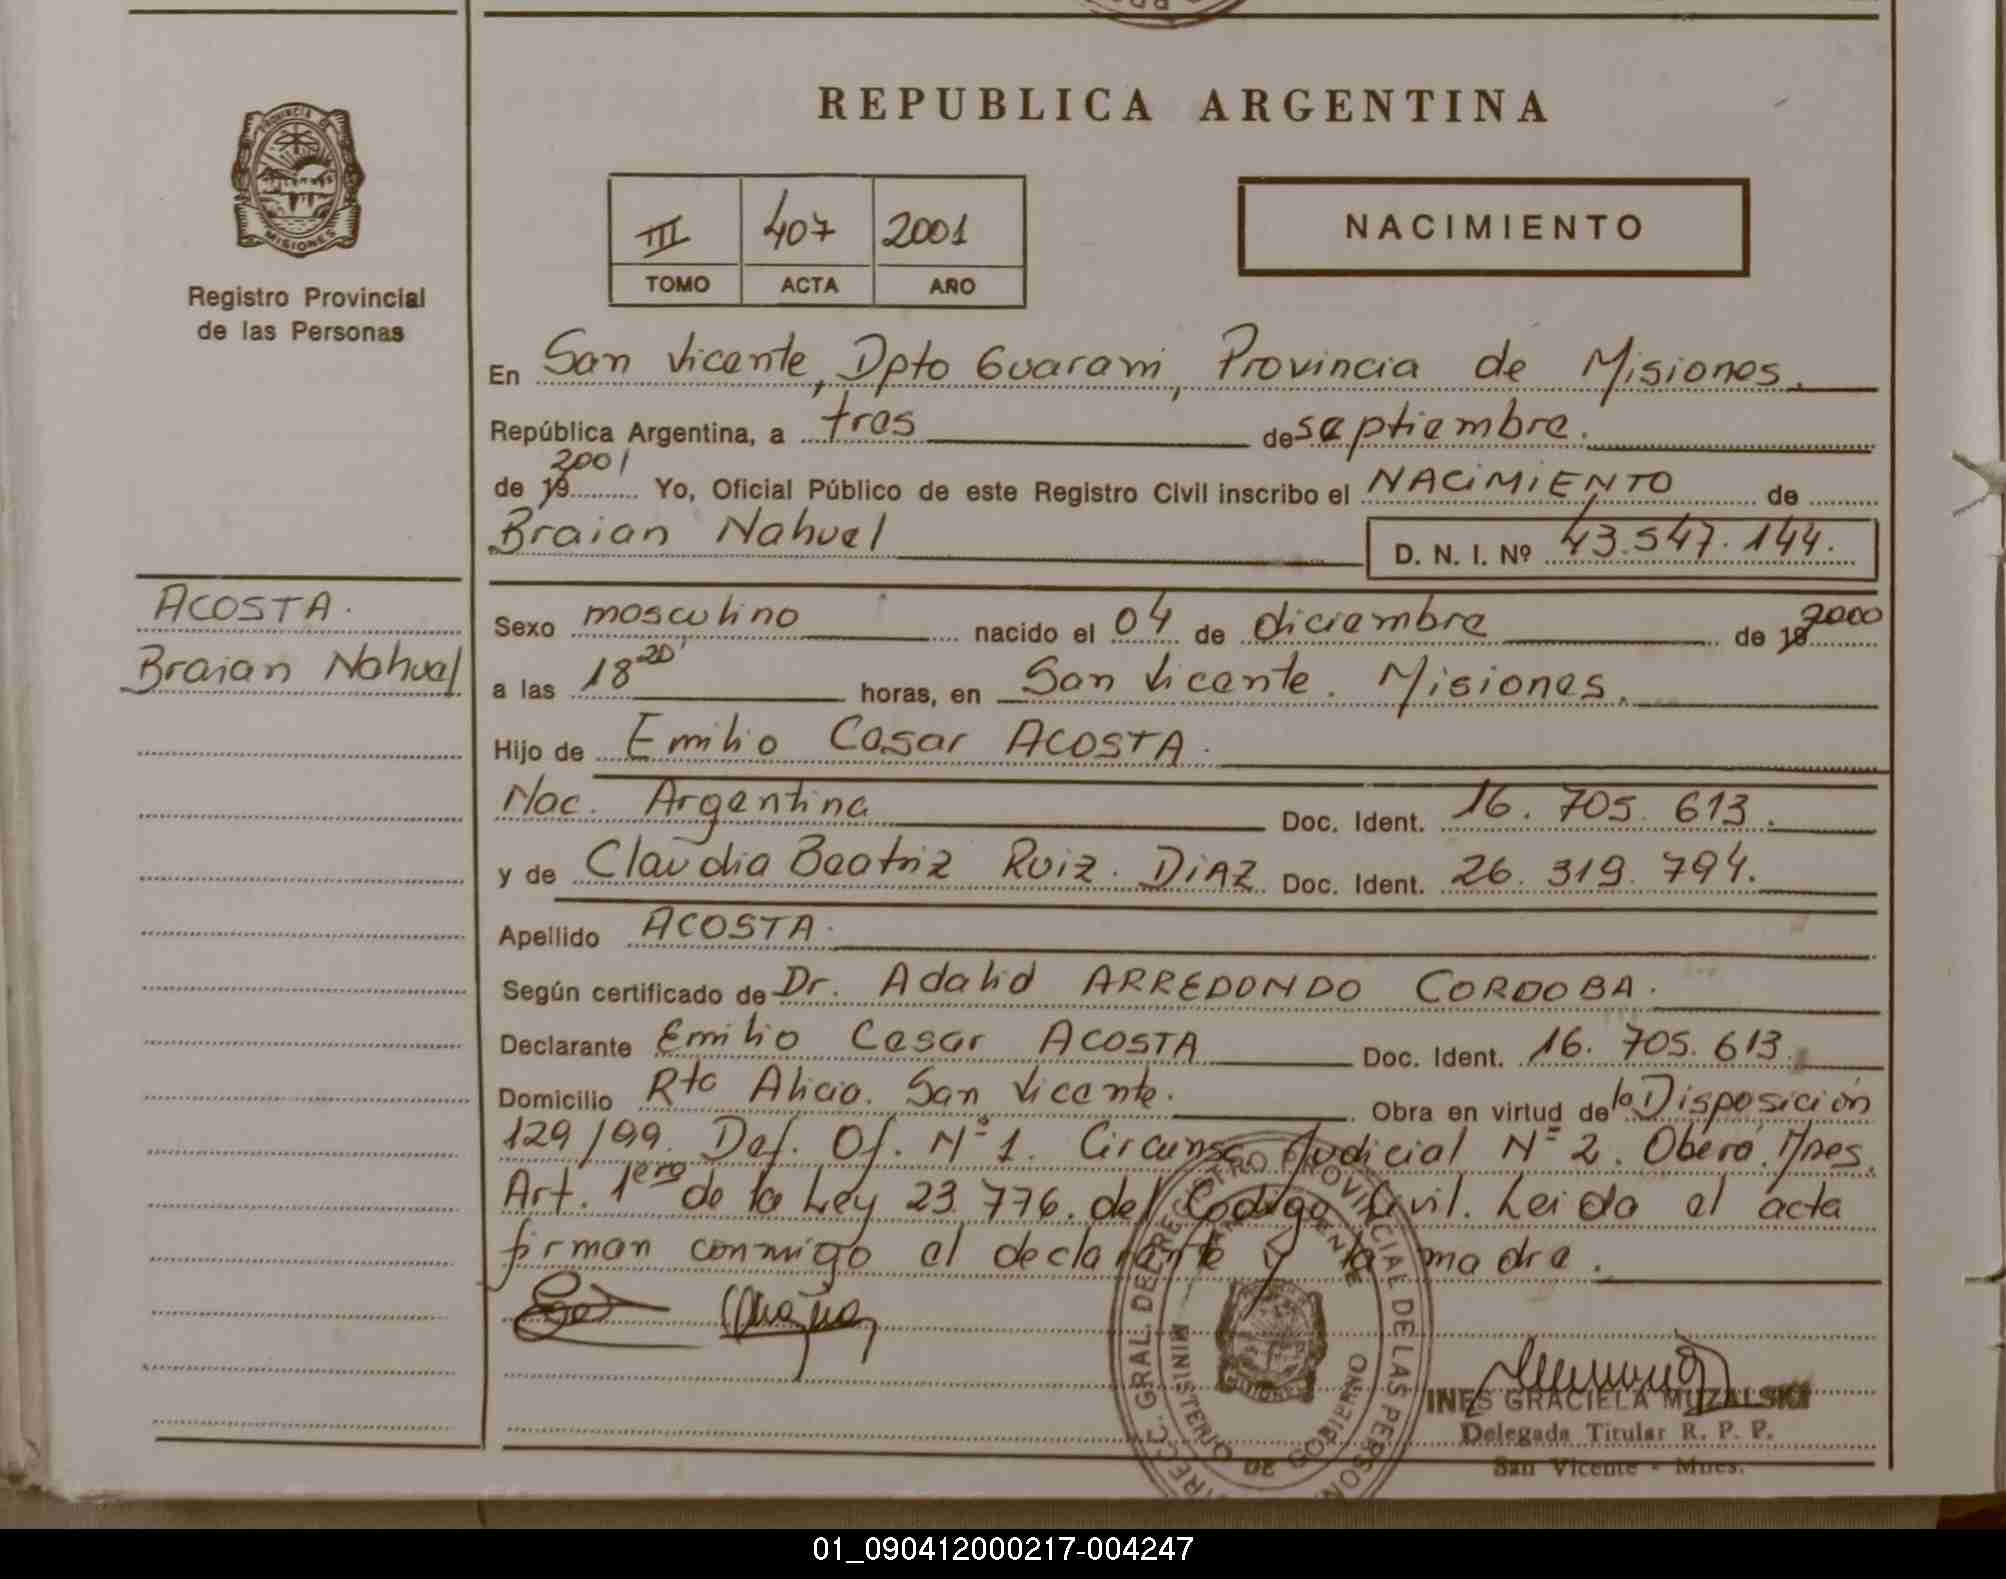 REPUBLICA ARGENTINA
PROVINCIA DE
MISIONES
Registro Provincial
de las Personas
III 407 2001
TOMO ACTA AÑO
NACIMIENTO
En San Vicente, Dpto Guarani, Provincia de Misiones.
República Argentina, a tres de septiembre.
de 19 2001 Yo, Oficial Público de este Registro Civil inscribo el NACIMIENTO de
Braian Nahuel D. N. I. Nº 43.547.144.
ACOSTA.
Braian Nahuel
Sexo masculino nacido el 04 de diciembre de 19 2000
a las 18 20' horas, en San Vicente. Misiones.
Hijo de Emilio Cesar ACOSTA.
Nac. Argentina Doc. Ident. 16. 705. 613.
y de Claudia Beatriz Ruiz. DiAZ Doc. Ident. 26. 319. 794.
Apellido ACOSTA.
Según certificado de Dr. Adalid ARREDONDO CORDOBA.
Declarante Emilio Cesar ACOSTA Doc. Ident. 16. 705. 613.
Domicilio Rto Alicia. San Vicente. Obra en virtud de la Disposición
129/99. Def. Of. Nº 1. Circunsc. Judicial Nº 2. Oberá. Mnes.
Art. 1ero de la Ley 23.776. del Codigo Civil. Leida el acta
firman conmigo el declarante y la madre.
DIREC. GRAL. DEL REGISTRO PROVINCIAL DE LAS PERSONAS
MINISTERIO DE GOBIERNO
INES GRACIELA MUZALSKI
Delegada Titular R. P. P.
San Vicente - Mnes.
01_090412000217-004247